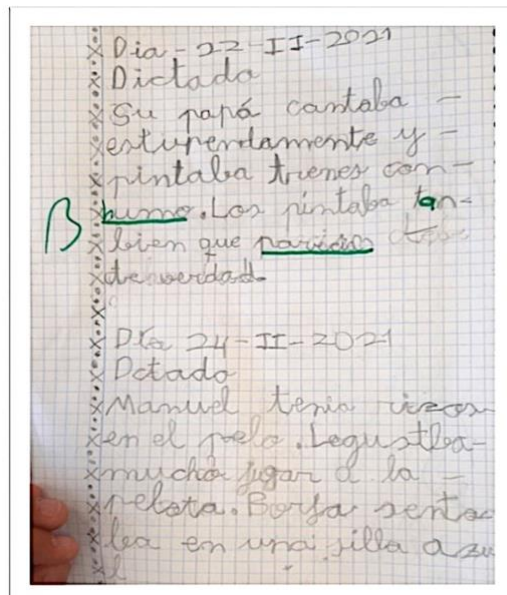 Dia - 22-II-2021
Dictado
Su papá cantaba -
estupendamente y -
pintaba trenes con -
B humo. Los pintaba tan-
bien que
de verdad.
Dia 24-II-2021
Dctado
Manuel tenia rizos
en el pelo. Legustba-
mucho jugar a la -
pelota. Borja senta
ba en una silla azu
l